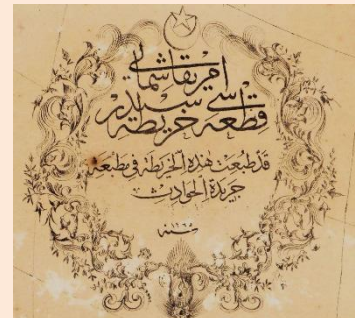 امريقا شمالى
قطعه سى خريطه سيدر
قد طبعت هذه الخريطه فى مطبعة
جريدة الحوادث
سنه